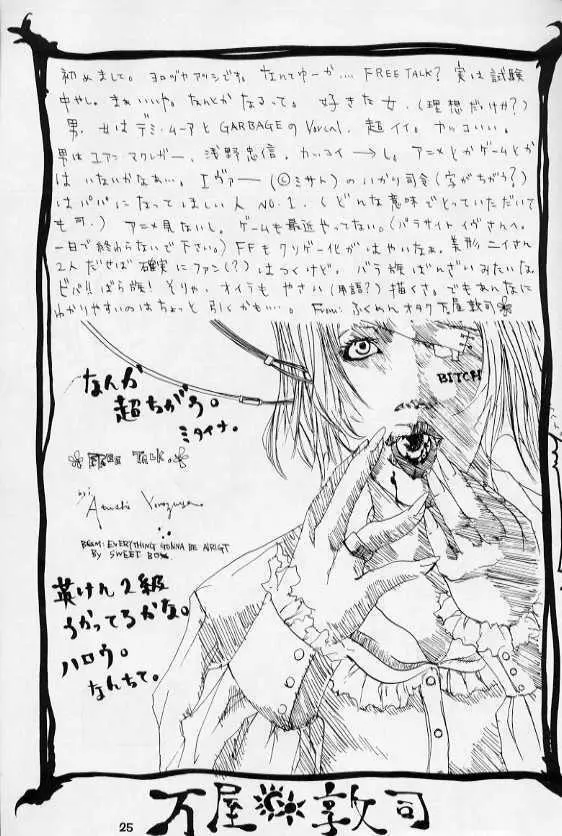 初めまして。ヨロヅヤアツシです。なんてゆーか…. FREE TALK? 実は試験
中やし。まぁいいや。なんとかなるって。好きな女.(理想だけか?)
男. 女はデミ・ムーアとGARBAGEのVocal. 超イイ。カッコいい。
男はユアン・マクレガー、浅野忠信。カッコイーし。アニメとかゲームとか
はいないかなあ…。エヴァー(©ミサト)のいかり司令(字がちがう?)
はパパになってほしい人NO.1. (どんな意味でとっていただいて
も可.) アニメ見ないし。ゲームも最近やってない。(パラサイトイヴさんへ。
一日で終わらないで下さい。) FFもクソゲー化がはやいなぁ。美形ニイさん
2人だせば確実にファン(?)はつくけど。バラ族ばんざいみたいな
ビバ!!ばら族! そりゃ、オイラもやさい(用語?)描くさ。でもあんなに
わかりやすいのはちょっと引くかも…。From: ふくめんオタク万屋敦司
BITCH
なんか
超ちがう。
ミタイナ。
FREE TALK.
by: Atsushi Yorozuya
BGM: EVERYTHING GONNA BE AIRIGT
BY SWEET BOX
英けん2級
うかってるかな。
ハロウ。
なんちて。
25
万屋敦司